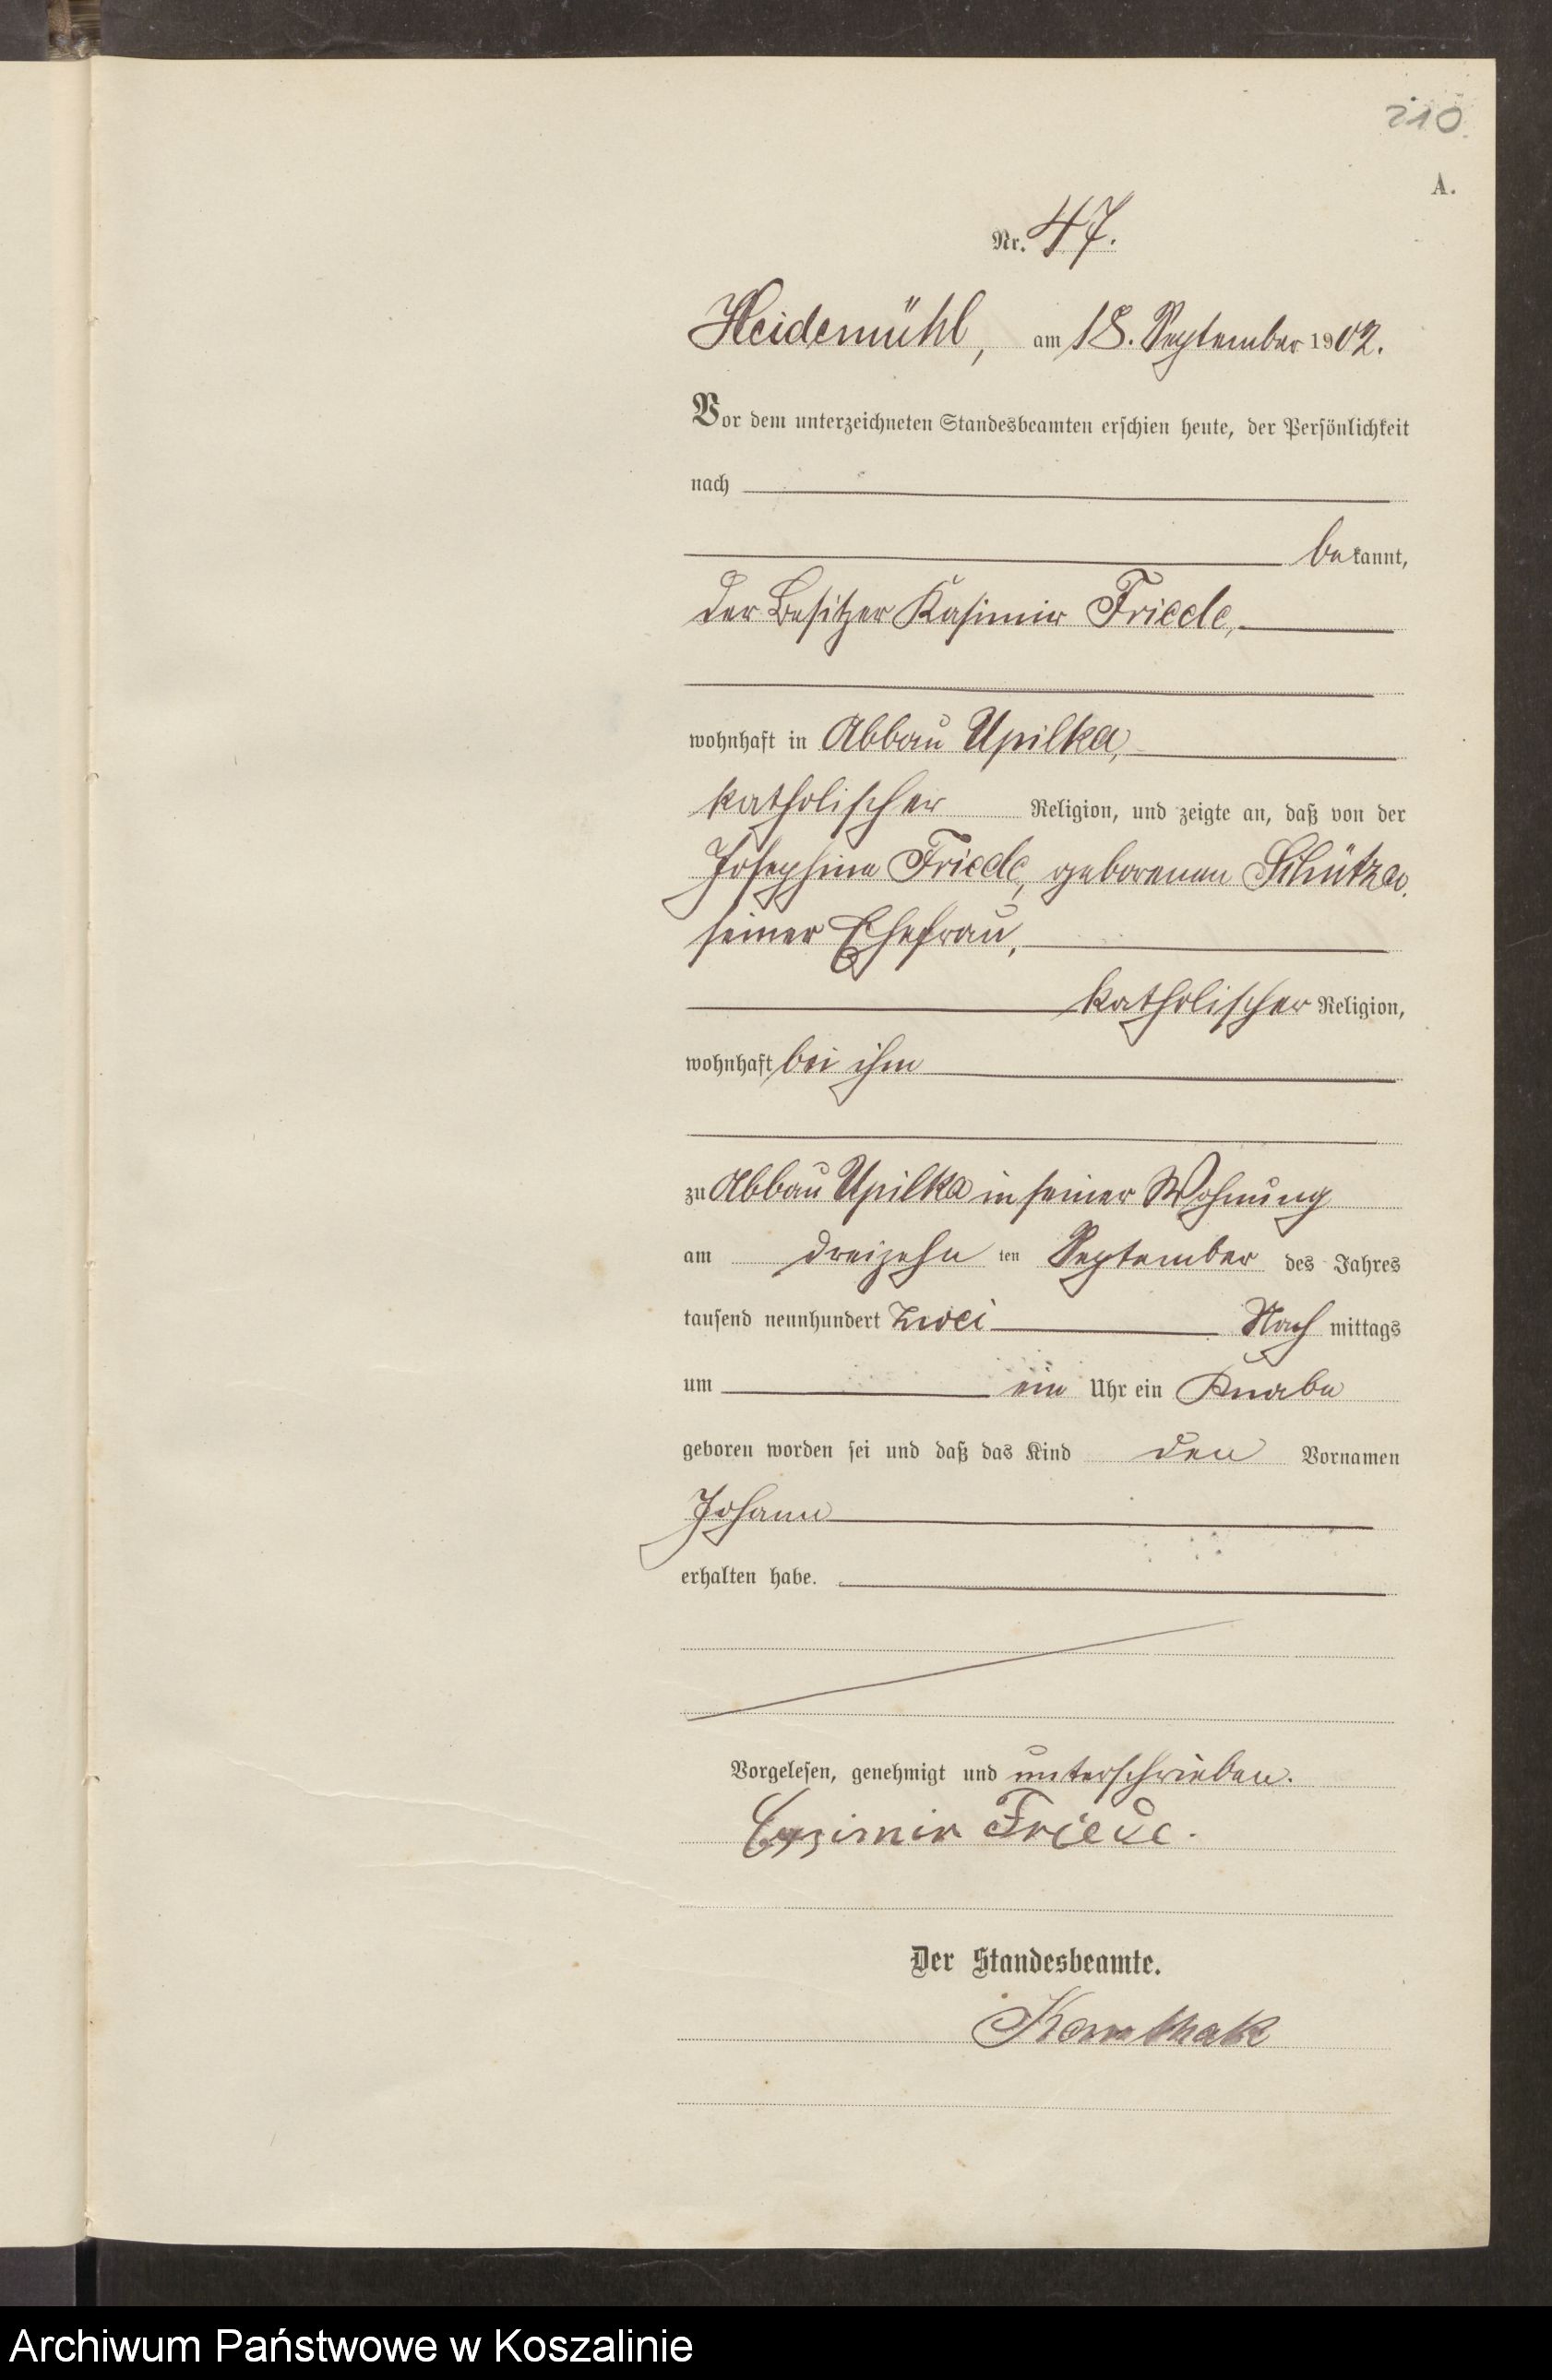 210.
A.
Nr. 47.
Heidemühl, am 18. September 1902.
Vor dem unterzeichneten Standesbeamten erschien heute, der Persönlichkeit
nach
bekannt,
der Besitzer Kasimir Friede,
wohnhaft in Abbau Upilka,
katholischer Religion, und zeigte an, daß von der
Josephine Friede, geborenen Schütza,
seiner Ehefrau,
katholischer Religion,
wohnhaft bei ihm
zu Abbau Upilka in seiner Wohnung
am dreizehn ten September des Jahres
tausend neunhundert zwei Nach mittags
um ein Uhr ein Knabe
geboren worden sei und daß das Kind den Vornamen
Johann
erhalten habe.
Vorgelesen, genehmigt und unterschrieben.
Cazimir Friede.
Der Standesbeamte.
Archiwum Państwowe w Koszalinie